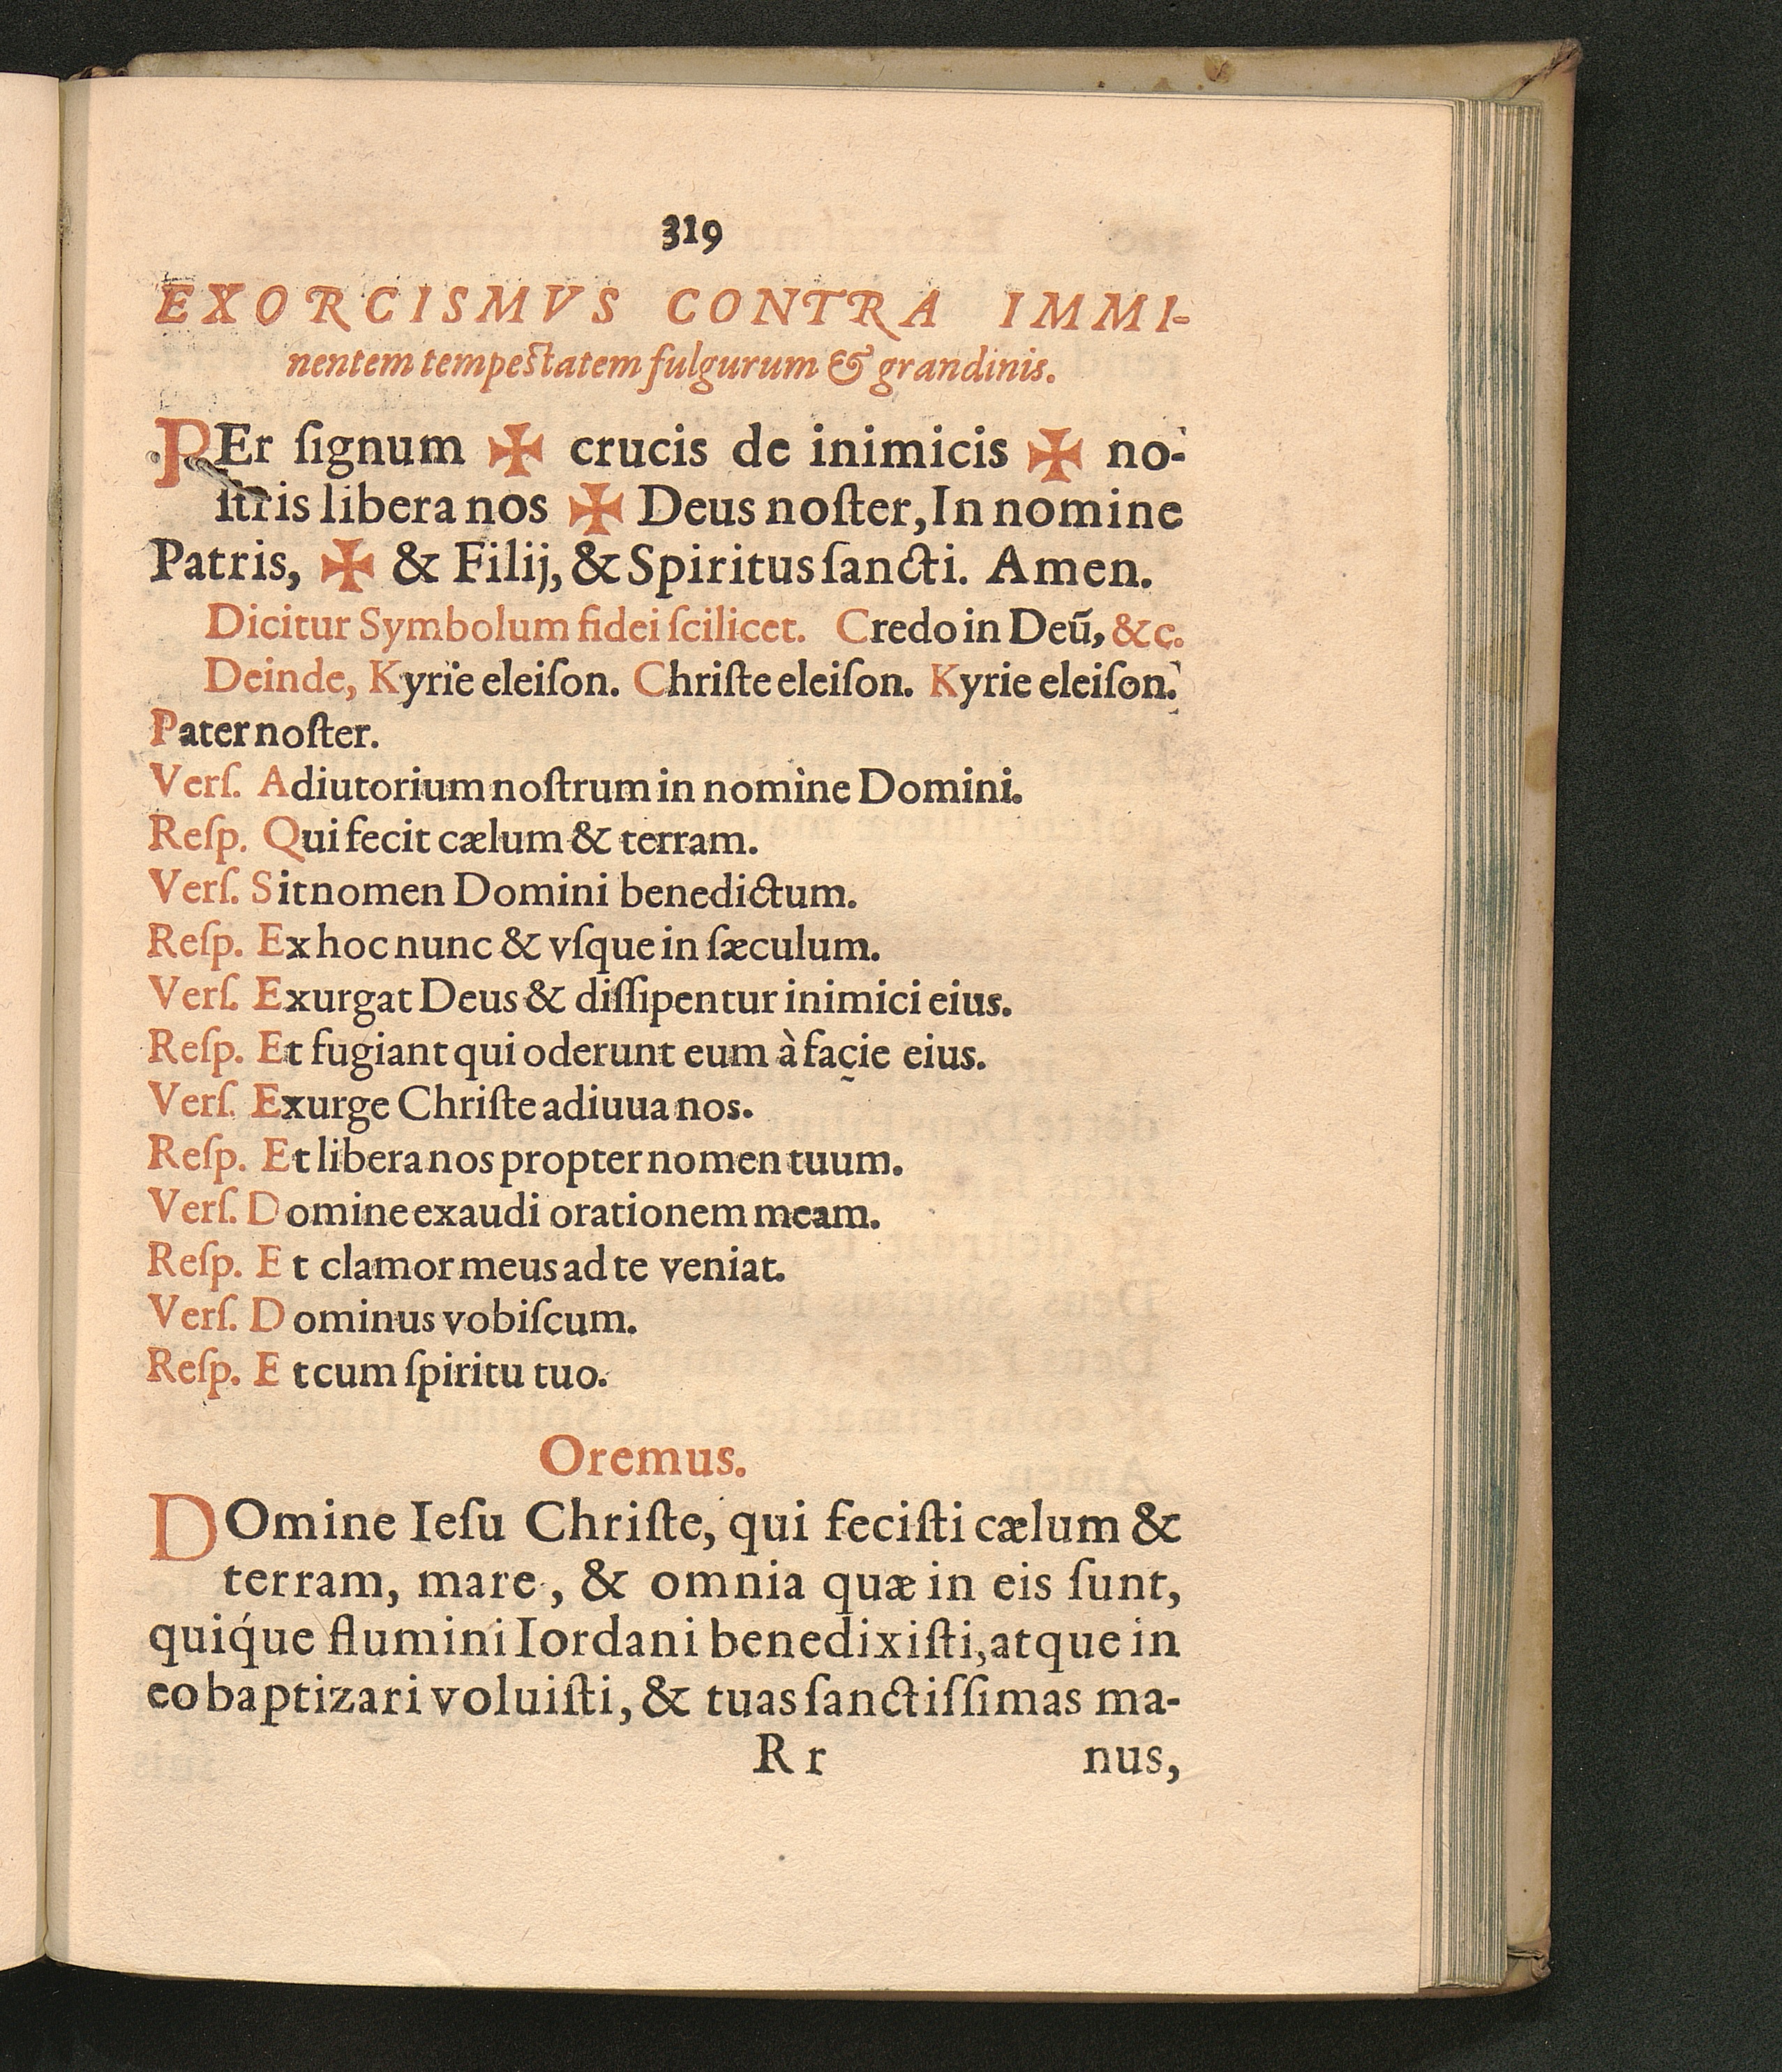 319
EXORCISMVS CONTRA IMMI-
nentem tempestatem fulgurum & grandinis.
PEr ſignum ✠ crucis de inimicis ✠ no-
ſtris libera nos ✠ Deus noſter, In nomine
Patris, ✠ & Filij, & Spiritus ſancti. Amen.
Dicitur Symbolum fidei ſcilicet. Credo in Deũ, &c.
Deinde, Kyrie eleiſon. Chriſte eleiſon. Kyrie eleiſon.
Pater noſter.
Verſ. Adiutorium noſtrum in nomine Domini.
Reſp. Qui fecit cælum & terram.
Verſ. Sit nomen Domini benedictum.
Reſp. Ex hoc nunc & vſque in ſæculum.
Verſ. Exurgat Deus & diſſipentur inimici eius.
Reſp. Et fugiant qui oderunt eum à facie eius.
Verſ. Exurge Chriſte adiuua nos.
Reſp. Et libera nos propter nomen tuum.
Verſ. Domine exaudi orationem meam.
Reſp. Et clamor meus ad te veniat.
Verſ. Dominus vobiſcum.
Reſp. Et cum ſpiritu tuo.
Oremus.
DOmine Ieſu Chriſte, qui feciſti cælum &
terram, mare, & omnia quæ in eis ſunt,
quiq́ue flumini Iordani benedixiſti, atque in
eo baptizari voluiſti, & tuas ſanctiſſimas ma-
Rr nus,